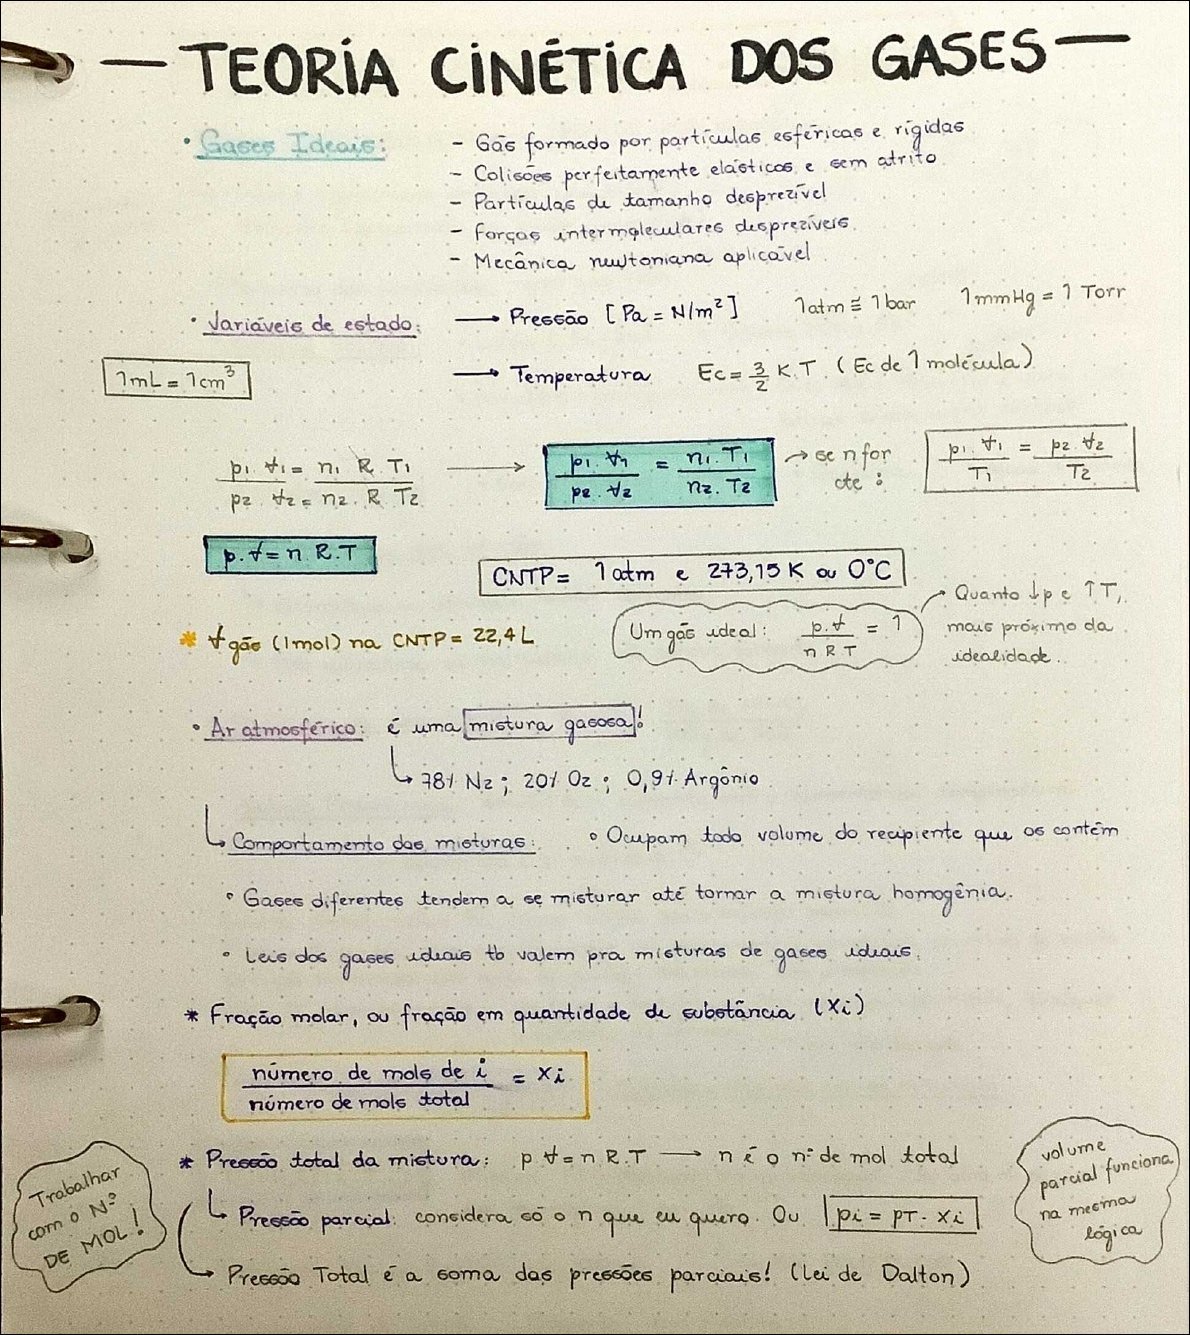 — TEORIA CINÉTICA DOS GASES —
• Gases Ideais:
- Gás formado por partículas esféricas e rígidas
- Colisões perfeitamente elásticas e sem atrito
- Partículas de tamanho desprezível
- Forças intermoleculares desprezíveis.
- Mecânica newtoniana aplicável
• Variáveis de estado:
→ Pressão [Pa = N/m²] 1atm ≅ 1bar 1mmHg = 1 Torr
1mL = 1cm³
→ Temperatura Ec = 3/2 K.T (Ec de 1 molécula)
p1.V1 = n1 R T1
p2.V2 = n2.R T2
→ p1.V1 / p2.V2 = n1.T1 / n2.T2
→ se n for
cte:
p1.V1 / T1 = p2.V2 / T2
p.V = n.R.T
CNTP = 1atm e 273,15K ou 0°C
* V gás (1mol) na CNTP = 22,4L
Um gás ideal: p.V / n R T = 1
→ Quanto ↓p e ↑T,
mais próximo da
idealidade.
• Ar atmosférico: é uma mistura gasosa!
↳ 78% N2; 20% O2; 0,9% Argônio
↳ Comportamento das misturas: • Ocupam todo volume do recipiente que os contêm
• Gases diferentes tendem a se misturar até tornar a mistura homogênia.
• Leis dos gases ideais tb valem pra misturas de gases ideais.
* Fração molar, ou fração em quantidade de substância (Xi)
número de mols de i / número de mols total = Xi
* Pressão total da mistura: p V = n.R.T → n é o nº de mol total
↳ Pressão parcial: considera só o n que eu quero. Ou pi = pT. Xi
→ Pressão Total é a soma das pressões parciais! (Lei de Dalton)
Trabalhar
com o Nº
DE MOL!
volume
parcial funciona
na mesma
lógica